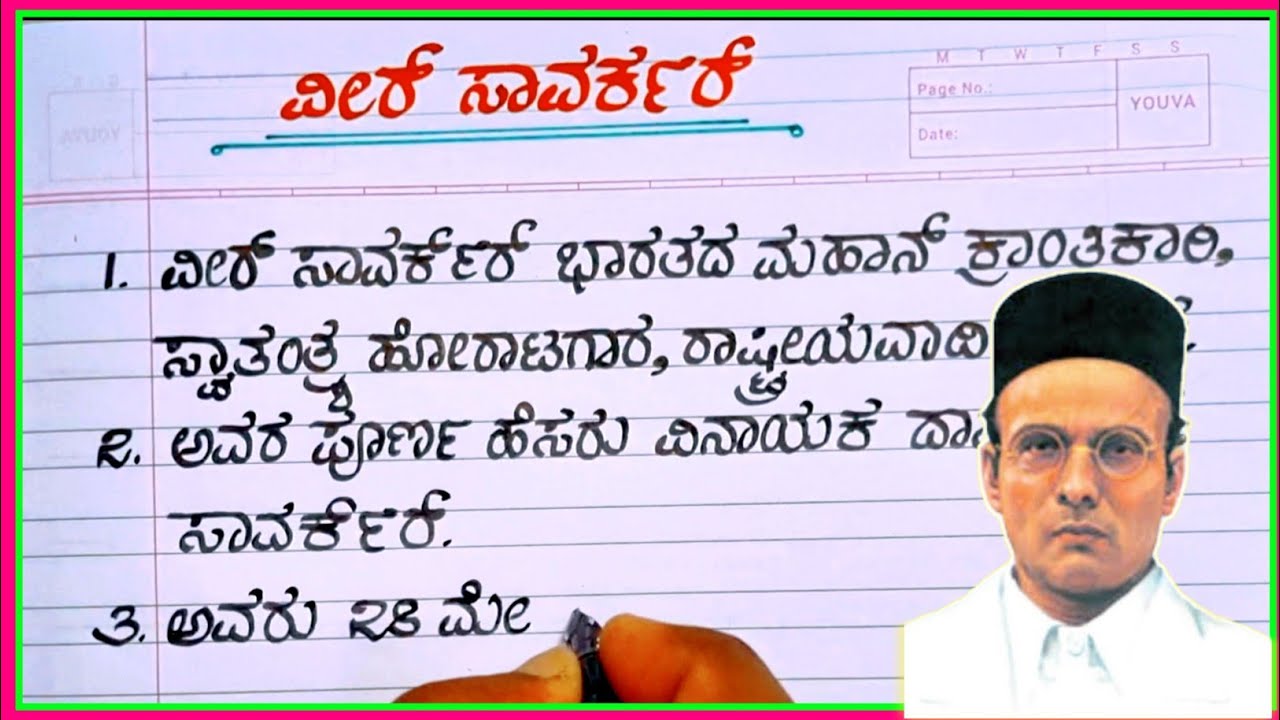 ವೀರ್ ಸಾವರ್ಕರ್
M T W T F S S
Page No.:
YOUVA
Date:
1. ವೀರ್ ಸಾವರ್ಕರ್ ಭಾರತದ ಮಹಾನ್ ಕ್ರಾಂತಿಕಾರಿ,
ಸ್ವಾತಂತ್ರ್ಯ ಹೋರಾಟಗಾರ, ರಾಷ್ಟ್ರೀಯವಾದಿ
2. ಅವರ ಪೂರ್ಣ ಹೆಸರು ವಿನಾಯಕ
ಸಾವರ್ಕರ್.
3. ಅವರು 28 ಮೇ